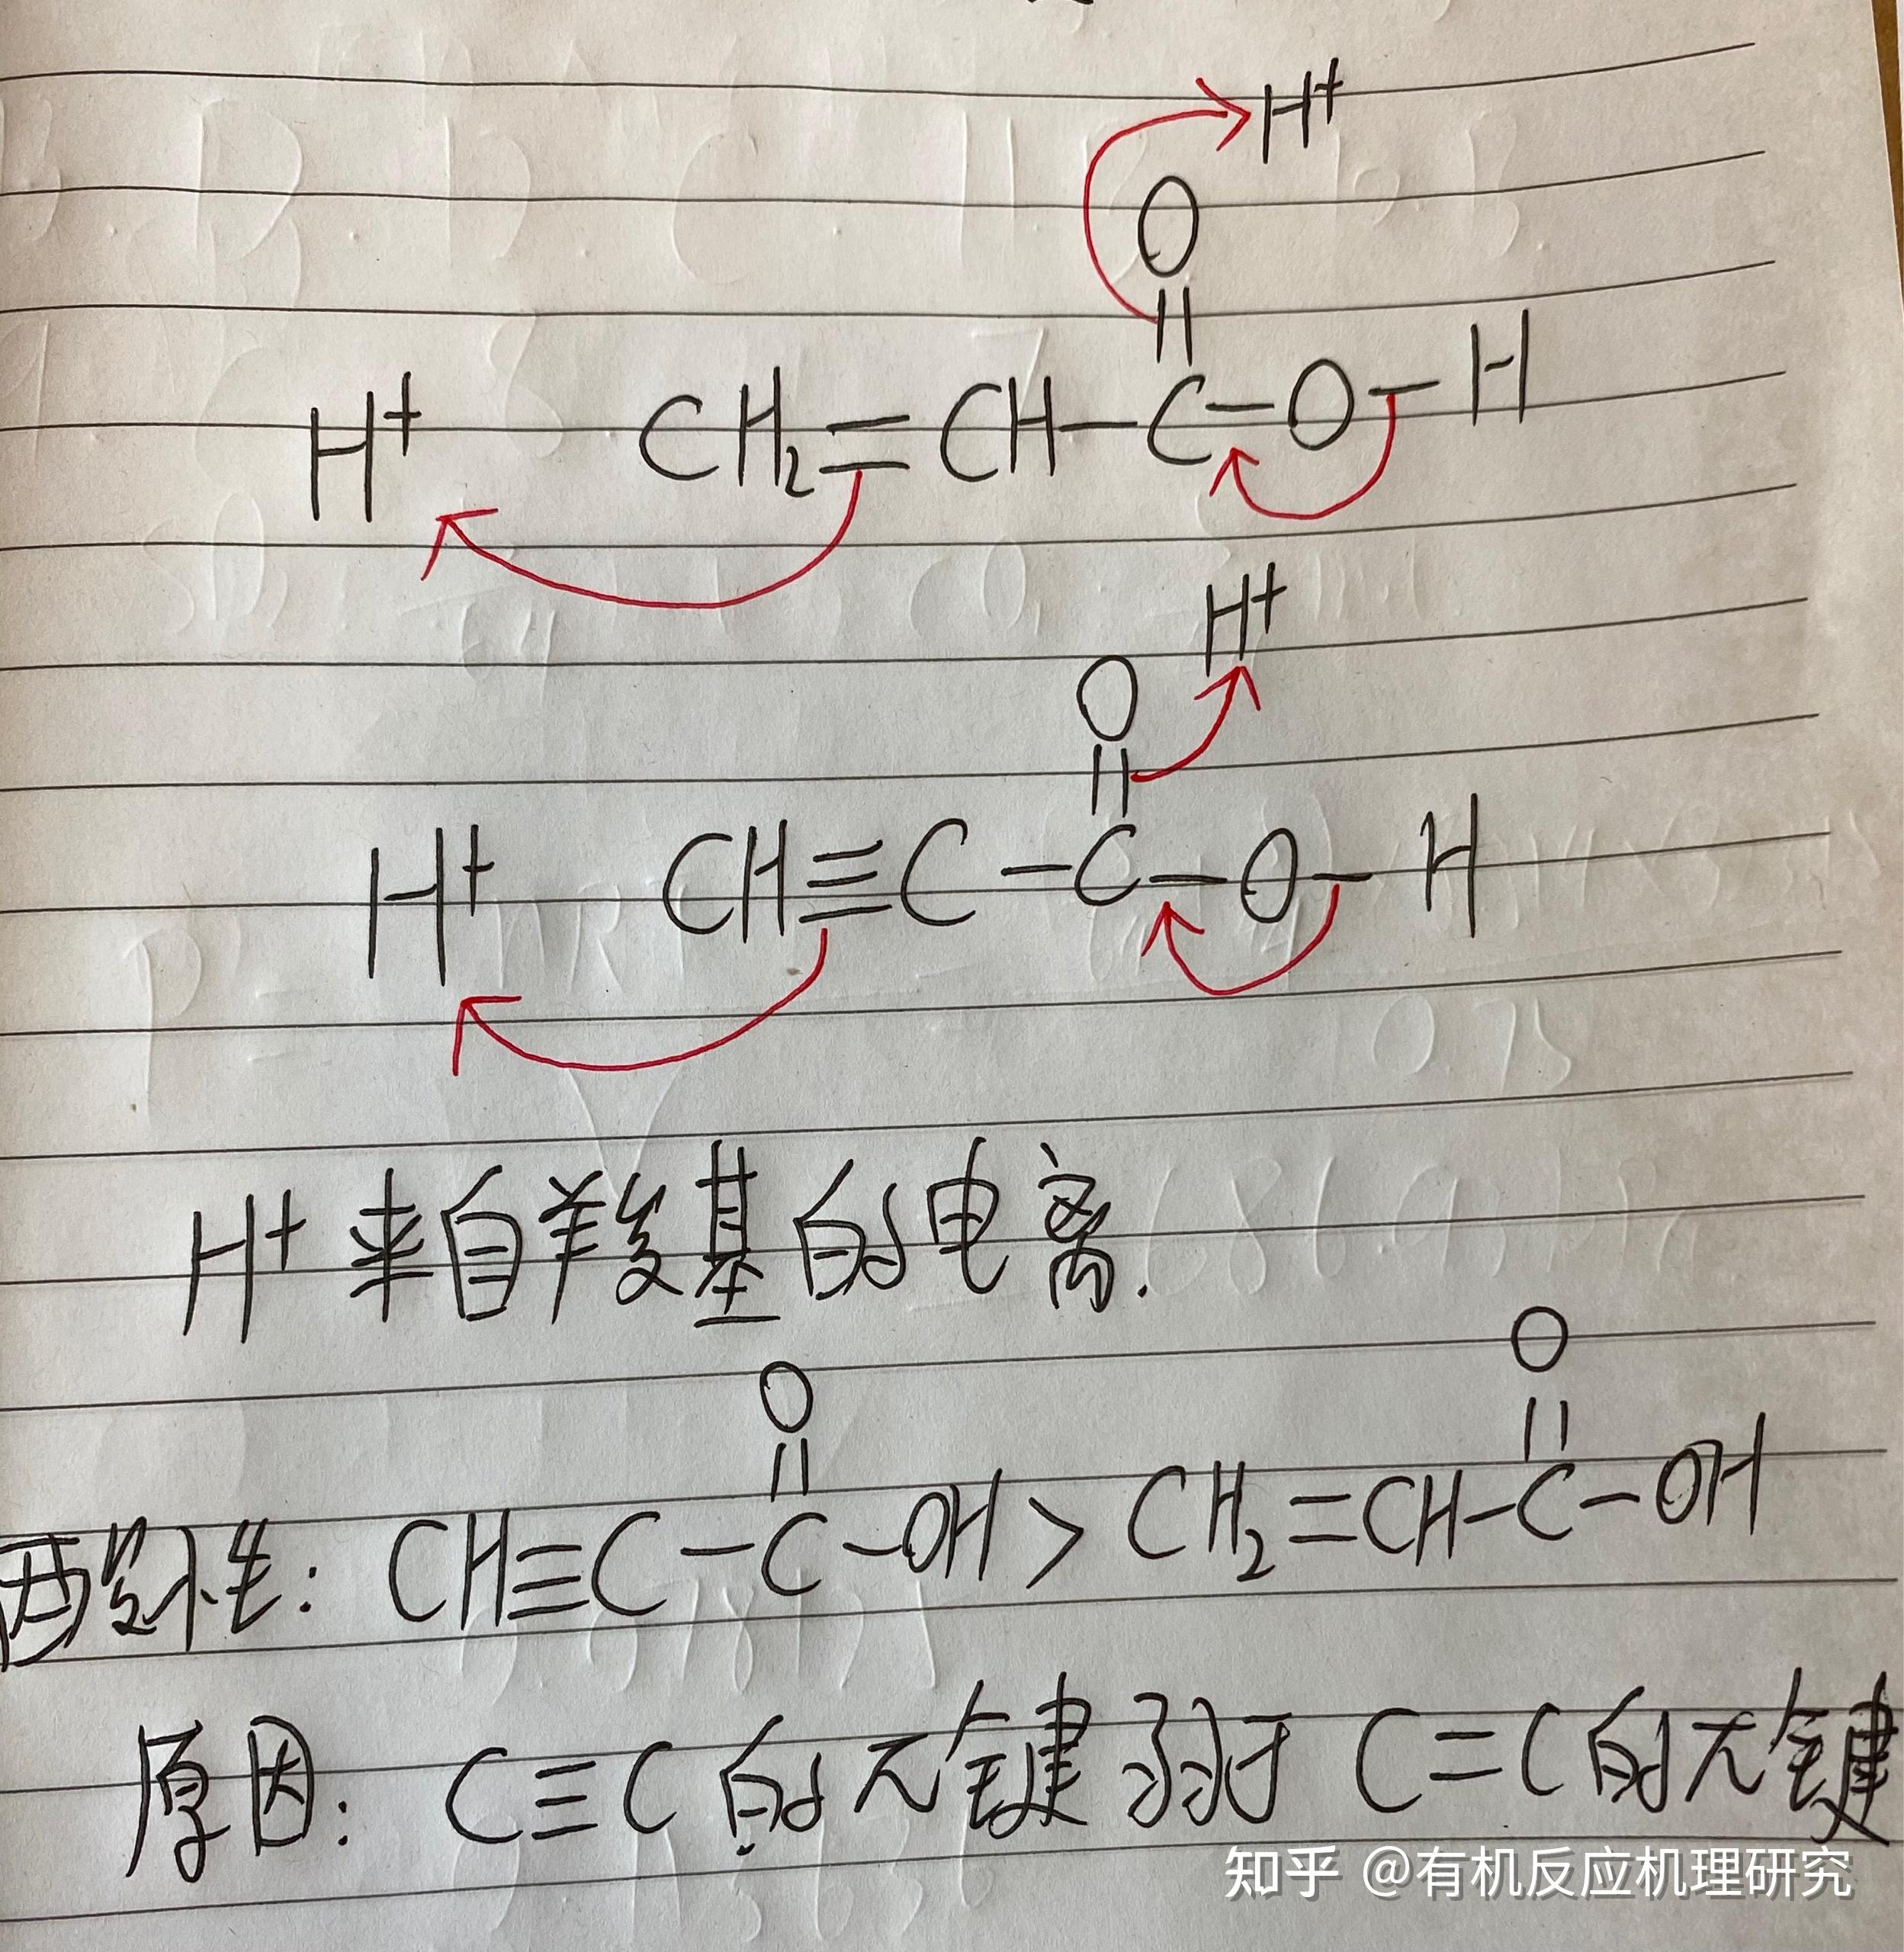 H⁺
O
H⁺ CH₂=CH-C-O-H
H⁺
O
H⁺ CH≡C-C-O-H
H⁺来自羧基的电离.
O
O
酸性: CH≡C-C-OH > CH₂=CH-C-OH
原因: C≡C的π键弱于C=C的π键
知乎 @有机反应机理研究